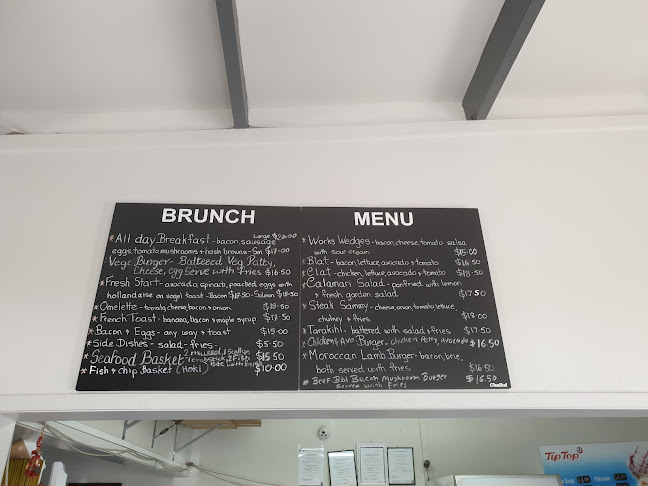 BRUNCH
* All day Breakfast - bacon, sausage Large $23.00
eggs, tomato, mushrooms + hash browns - Sm $17.00
Vege Burger - Battered Veg Patty,
Cheese, egg Serve with fries $16.50
* Fresh Start - avocado, spinach, poached eggs with
hollandaise on bagel toast - Bacon Salmon
* Omelette - tomato, cheese, bacon & onion
* French Toast - banana, bacon & maple syrup $17.50
* Bacon & Eggs - any way & toast $15.00
* Side Dishes - salad - fries - $5.50
* Seafood Basket 2 mussel, 1 Scallop $15.50
* Fish & chip Basket (Hoki) $10.00
MENU
* Works Wedges - bacon, cheese, tomato salsa
with sour cream $15.00
* Blat - bacon, lettuce, avocado & tomato $16.50
* Clat - chicken, lettuce, avocado & tomato
* Calamari Salad - panfried with lemon
& fresh garden salad $17.50
* Steak Sammy - cheese, onion, tomato, lettuce,
chutney & fries $19.00
* Tarakihi - battered with salad & fries $17.50
* Chicken & Avo Burger - chicken Patty, Avocado $16.50
* Moroccan Lamb Burger bacon, brie,
both served with fries $16.50
* Beef Bbq Bacon Mushroom Burger
Served with Fries $16.50
Chalkd
Tip Top